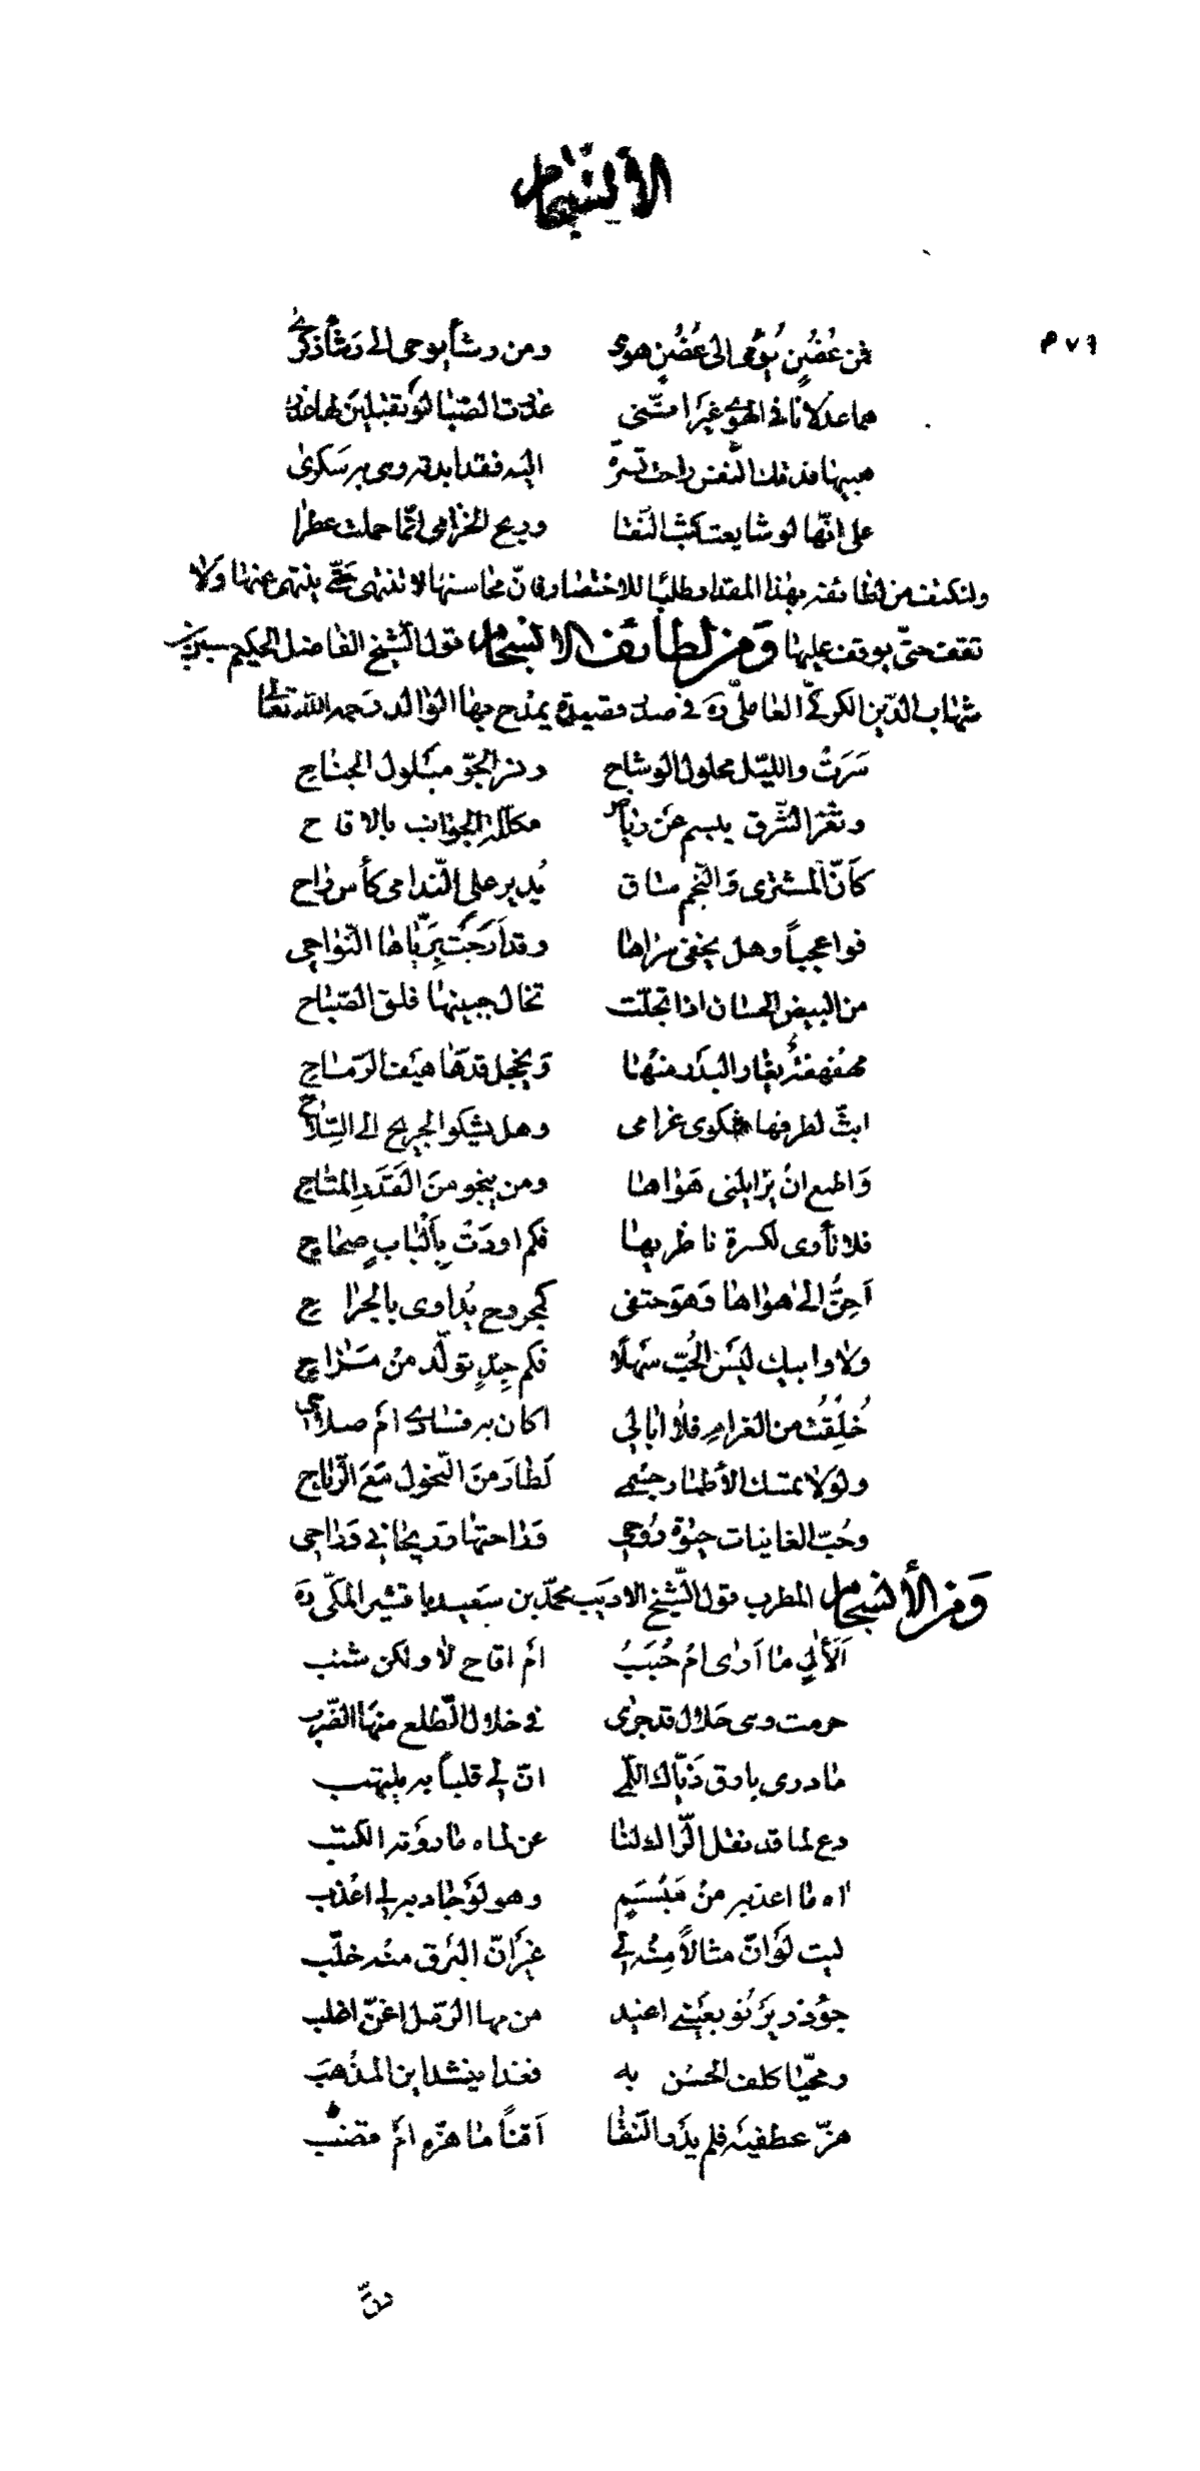 الأنسجام
٣٧٦
فمن غُصُنٍ يُومى الى غُصُنٍ هوى ومن رشأ يوحى الى رشأ ذكرى
هما عذلانا فى الهوى غيرَ انّنى عذرت الصّبا لو تقبلين لها عذرا
هبيها فدتك النّفس راحت تسرّه اليه فقد ابدته وهى به سكرى
على انّها لو شايعت كثب النّقا وريح الخزامى انّما حملت عطرا
ولنكتف من لطائفه بهذا المقدار طلبًا للاختصار فانّ محاسنها لا تنتهى حتّى ينتهى عنها وَلا
تقف حتّى يوقف عليها وَمن لطائف الانسجام قول الشّيخ الفاضل الحكيم حسين بن
شهاب الدّين الكركىّ العاملىّ رَه فى صدر قصيدة يمدح بها الوالد رحمه الله تعالى
سَرَتْ والليّل محلول الوشاح ونسر الجوّ مبَلول الجناح
وثغر الشّرق يبسم عَن رياض مكلّلة الجوانب بالاقاح
كَأنّ المشترى وَالنّجم ساق يُدير على النّدامى كأس راح
فواعجباً وهل يخفى سراها وقد اَرجَت بِرَيّاها النّواحى
من البيض الحسان اذا تجلّت تخال جبينها فلق الصّباح
مهفهفةُ يغار البدر منها وَيخجل قدّها هيَف الرّماح
ابثّ لطرفها شكوى غرامى وهل يشكو الجريح الى السِّلاح
وَاطمع انْ يزايلنى هَواها ومن ينجو منَ القَدَرِ المتاح
فلا تأوى لكسرة ناظريها فكم اودَتْ بِاَلْبابٍ صحاح
اَحِنُّ الى هواها وَهوَ حتفى كمجروح يُداوى بالجراح
ولا وابيك ليَسَ الحُبّ سَهلًا فكم جِدٍّ تولّد منْ مَزاح
خُلِقْتُ من الغرامِ فلا ابالى اكان به فسادى امْ صلاحى
ولَوَلا تمسك الأطمار جسْمى لَطارَ منَ النّحول مَعَ الرّياح
وحُبّ الغانيات حيوة رُوحى وَراحتها وريحانى وَراحى
وَمن الأنسجام المطرب قول الشّيخ الاديَب محمّد بن سعَيد باقشير المكّى رَه
اَلَآلٍ ما اَرى ام حُبَبُ امْ اقاح لا ولكن شنب
حرمت وهى حَلال قد جرى فى خلال الطّلع منها الضّرب
ما درى بارق ذَيّاك اللّمى انّ لى قلباً به يلتهب
دع لما قد نقل الرّاك لنا عن لماه ما روَته الكتب
اه ما اعذبه منْ مَبْسَمٍ وهو لوْ جاد به لى اعْذب
ليت لَوَانّ مثالاً مِنْه لى غيرَ انّ البرَق منه خلّب
جؤذر يَرْنو بعَينى اغيد من مها الرّمل اغنّ اغلب
ومحيّا كلف الحسْن به فغدا ينشد اين المذْهبَ
هزّ عطفيَه فلم يدَر النّقا اَقناً ما هزّه امْ قضب